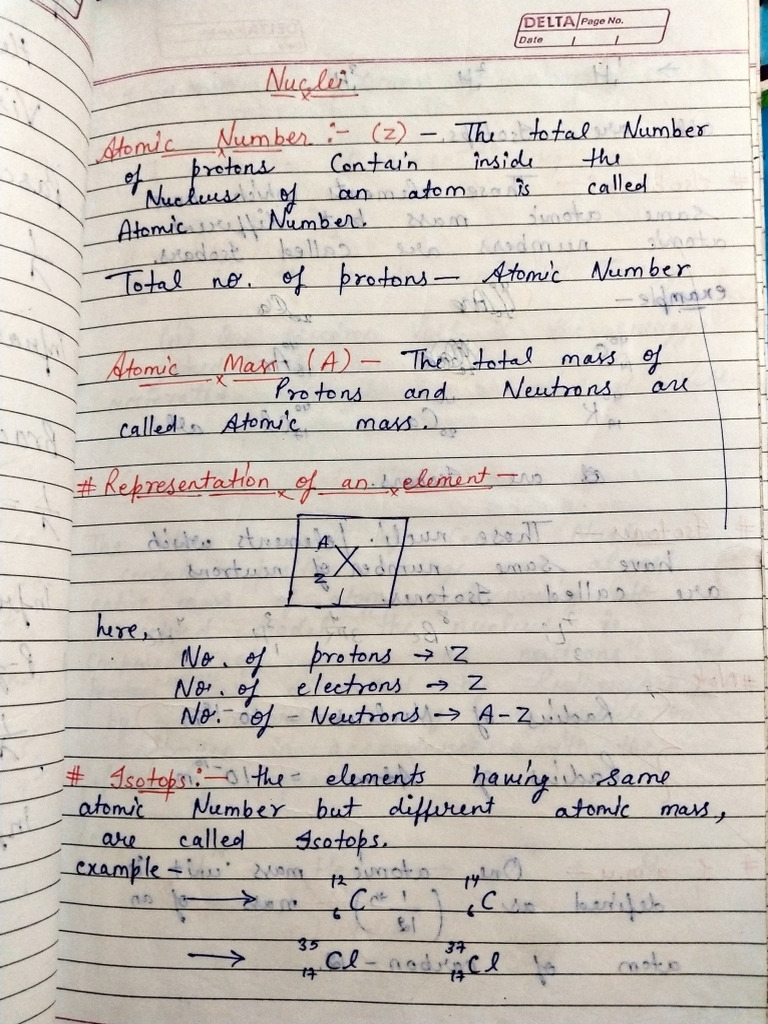 DELTA Page No.
Date
Nuclei
Atomic Number :- (Z) - The total Number
of protons Contain inside the
Nucleus of an atom is called
Atomic Number.
Total no. of protons — Atomic Number
Atomic Mass (A) - The total mass of
Protons and Neutrons are
called Atomic mass.
# Representation of an element -
A
X
Z
here,
No. of protons → Z
No. of electrons → Z
No. of - Neutrons → A-Z
# Isotops :- the elements having same
atomic Number but different atomic mass,
are called Isotops.
example -
→ ¹²₆C ¹⁴₆C
→ ³⁵₁₇Cl ³⁷₁₇Cl